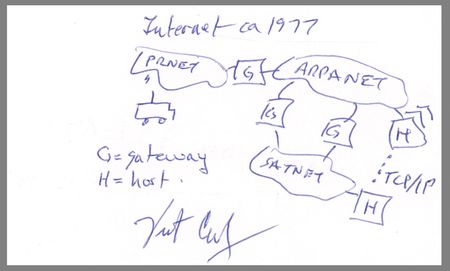 Internet ca 1977
PRNET
G
ARPANET
G
G
H
G = gateway
H = host.
SATNET
TCP/IP
H
Vint Cerf